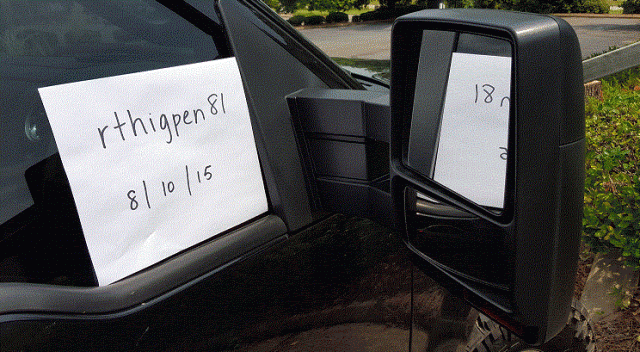 rthigpen81
8/10/15